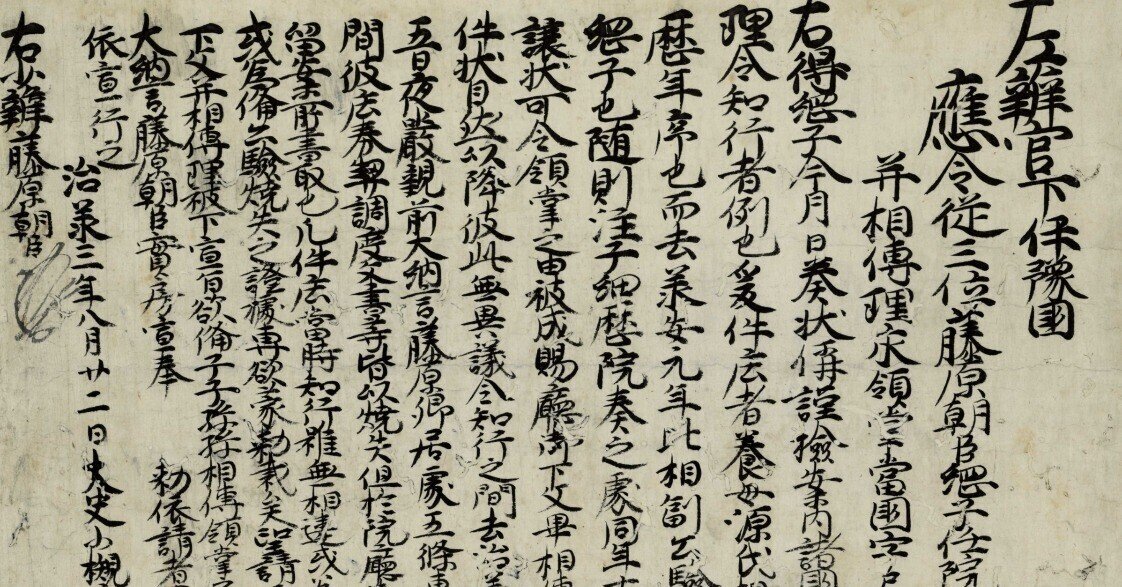 左辨官下伊豫國
應令從三位藤原朝臣綱子任院
并相傳理永領掌當國字
右得綱子今月日奏狀偁謹撿案內諸國
理令知行者例也爰件庄者養母源氏
歷年序也而去承安元年比相副公驗
綱子也隨則注子細歷院奏之處同年十
讓狀可令領掌之由被成賜廳御下文畢相傳
件狀自尒以降彼此無異議令知行之間去治承
五日夜嚴親前大納言藤原卿居處五條東
間彼庄券契調度文書等皆以燒失但於院廳
留案所書取也凡件庄當時知行雖無相違或
或為備公驗燒失之證據專欲蒙勅裁矣望請
下文并相傳理被下宣旨欲備子子孫孫相傳領掌
大納言藤原朝臣實房宣奉 勅依請者
依宣行之
治承三年八月廿二日大史小槻
右少辨藤原朝臣